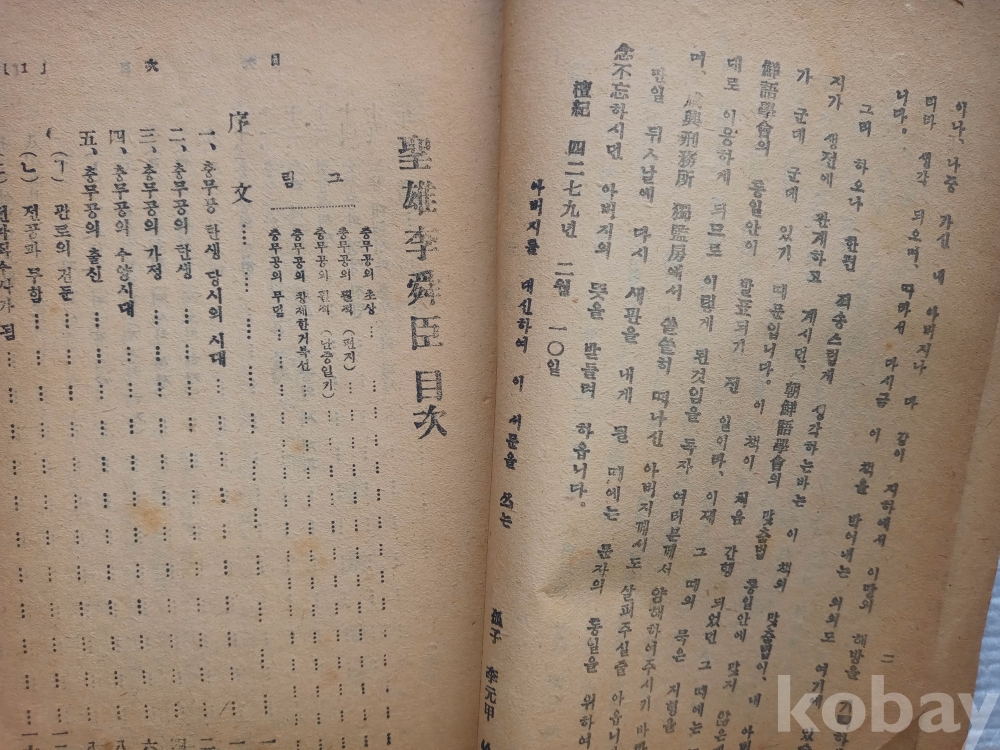 이나, 나중 가신 내 아버지나 다 같이 지하에서 이땅의 해방을
띠바 생각 되오며, 따라서 다시금 이 책을 박어내는 의의도 여기에
니다.
그러 하오나 한편 죄송스럽게 생각하는바는 이 책의 맞춤법이, 내 아
지가 생전에 관계하고 계시던, 朝鮮語學會의 맞춤법 통일안에 맞지 않은
가 군데 군데 있기 때문입니다. 이 책이 처음 간행 되었던 그 때에는
鮮語學會의 통일안이 발표되기 전 일이라, 이제 그 때의 묵은 지형을
대로 이용하게 되므로 이렇게 된것임을 독자 여러분께서 양해하여주시기 바라
며, 咸興刑務所 獨監房에서 쓸쓸히 떠나신 아버지께서도 살펴주실줄 아옵니
만일 뒤ㅅ날에 다시 새판을 내게 될 때에는 문자의 통일을 위하여
念不忘하시던 아버지의 뜻을 받들려 하옵니다.
檀紀 四二七九년 二월 一〇일
아버지를 대신하여 이 서문을 쓰는
孤子 李元甲
二
聖雄李舜臣 目次
그림
충무공의 초상
충무공의 필적 (편지)
충무공의 필적 (난중일기)
충무공의 창제한거북선
충무공의 무덤
序文
一、충무공 탄생 당시의 시대
二、충무공의 탄생
三、충무공의 가정
四、충무공의 수양시대
五、충무공의 출신
(ㄱ) 관도의 건둔
(ㄴ) 전공과 무함
目次
[1]
kobay